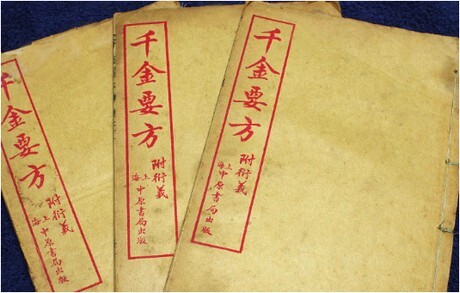 千金要方
附衍義
上海中原書局出版
千金要方
附衍義
上海中原書局出版
千金要方
附衍義
上海中原書局出版